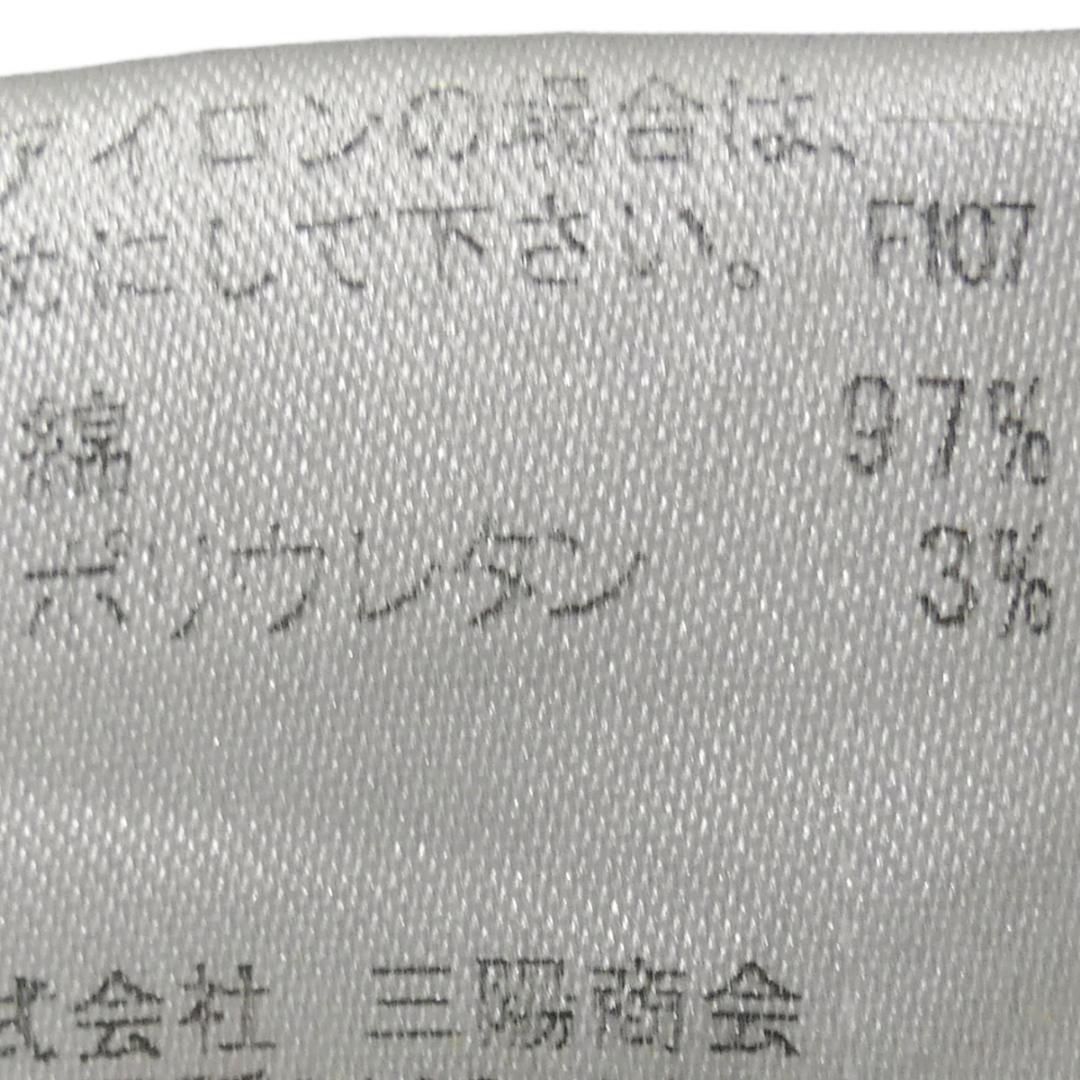 アイロンの場合は、
めにして下さい。 F107
綿 97%
ポリウレタン 3%
式会社 三陽商会